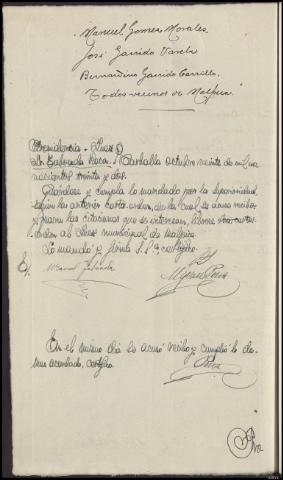 Manuel Gomez Morales.
José Garrido Varela
Bernardino Garrido Carrillo.
Todos vecinos de Malpica.
Providencia. Juez
Carballo octubre veinte de mil no
vecientos treinta y dos.
Guárdese y cumpla lo mandado por la superioridad
según la anterior carta orden, de la cual se acuse recibo
y para las citaciones que se interesan, líbrese
orden al Juez municipal de Malpica.
Lo mandó y firma S.Sª, certifico.
En el mismo día se acusó recibo y cumplió lo de
más acordado, certifico.